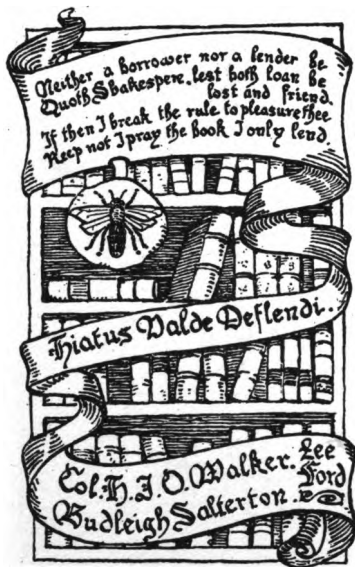 Neither a borrower nor a lender be
Quoth Shakespere, lest both loan be
lost and friend.
If then I break the rule to pleasure thee
Keep not I pray the book I only lend
Hiatus Valde Deflendi.
Col. H. J. O. Walker. Lee
Ford
Budleigh Salterton.